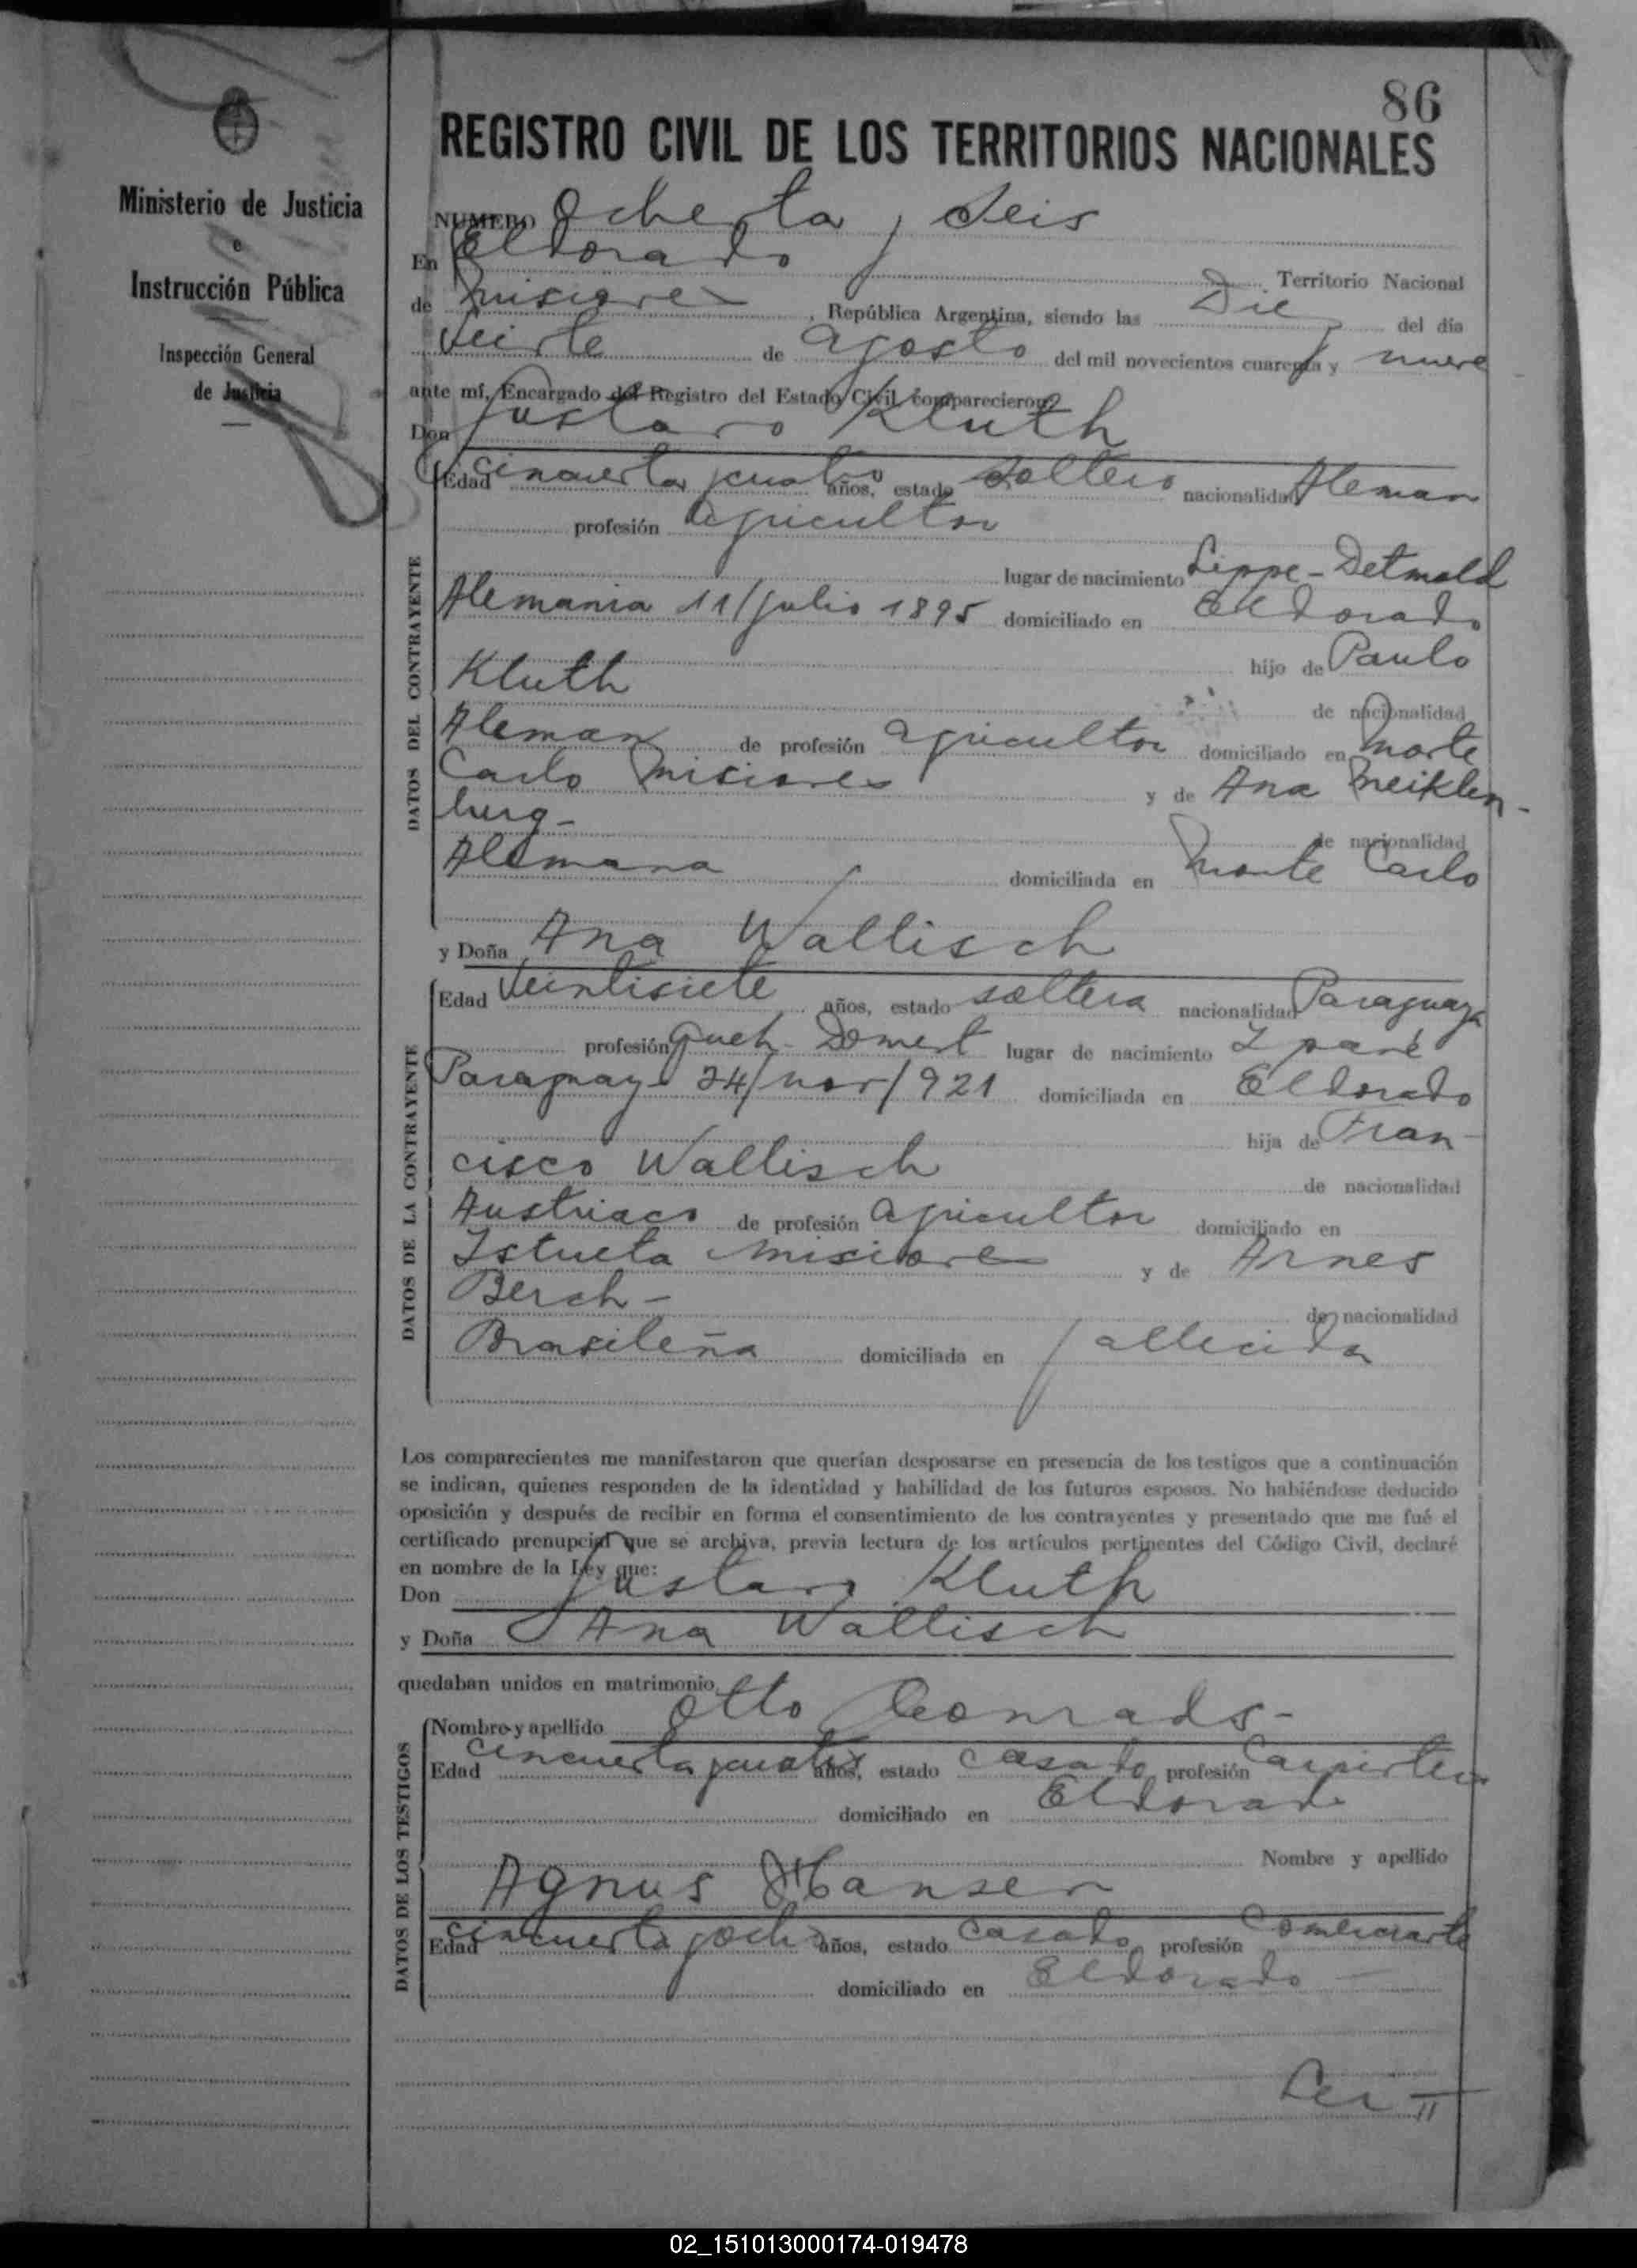 86
REGISTRO CIVIL DE LOS TERRITORIOS NACIONALES
Ministerio de Justicia
e
Instrucción Pública
Inspección General
de Justicia
NUMERO Ochenta y Seis
En Eldorado Territorio Nacional
de Misiones, República Argentina, siendo las Diez del día
Veinte de agosto del mil novecientos cuarenta y nueve
ante mí, Encargado del Registro del Estado Civil comparecieron
Don Gustavo Kluth
DATOS DEL CONTRAYENTE
Edad cincuenta y cuatro años, estado soltero nacionalidad Aleman
profesión agricultor
lugar de nacimiento Lippe-Detmold
Alemania 11/julio 1895 domiciliado en Eldorado
hijo de Paulo
Kluth
de nacionalidad
Aleman de profesión agricultor domiciliado en Monte
Carlo Misiones y de Ana Meiklen-
burg-
de nacionalidad
Alemana domiciliada en Monte Carlo
y Doña Ana Wallisch
DATOS DE LA CONTRAYENTE
Edad Veintisiete años, estado soltera nacionalidad Paraguaya
profesión Queh. Domest lugar de nacimiento Ypané
Paraguay 24/nov/921 domiciliada en Eldorado
hija de Fran-
cisco Wallisch
de nacionalidad
Austriaco de profesión agricultor domiciliado en
Istueta Misiones y de Arnes
Berch-
de nacionalidad
Brasileña domiciliada en fallecida
Los comparecientes me manifestaron que querían desposarse en presencia de los testigos que a continuación
se indican, quienes responden de la identidad y habilidad de los futuros esposos. No habiéndose deducido
oposición y después de recibir en forma el consentimiento de los contrayentes y presentado que me fué el
certificado prenupcial que se archiva, previa lectura de los artículos pertinentes del Código Civil, declaré
en nombre de la Ley que:
Don Gustavo Kluth
y Doña Ana Wallisch
quedaban unidos en matrimonio.
DATOS DE LOS TESTIGOS
Nombre y apellido Otto Conrads-
Edad cincuenta y cuatro años, estado Casado profesión Carpintero
domiciliado en Eldorado
Nombre y apellido
Agnus Hansen
Edad cincuenta y ocho años, estado Casado profesión Comerciante
domiciliado en Eldorado-
02_151013000174-019478